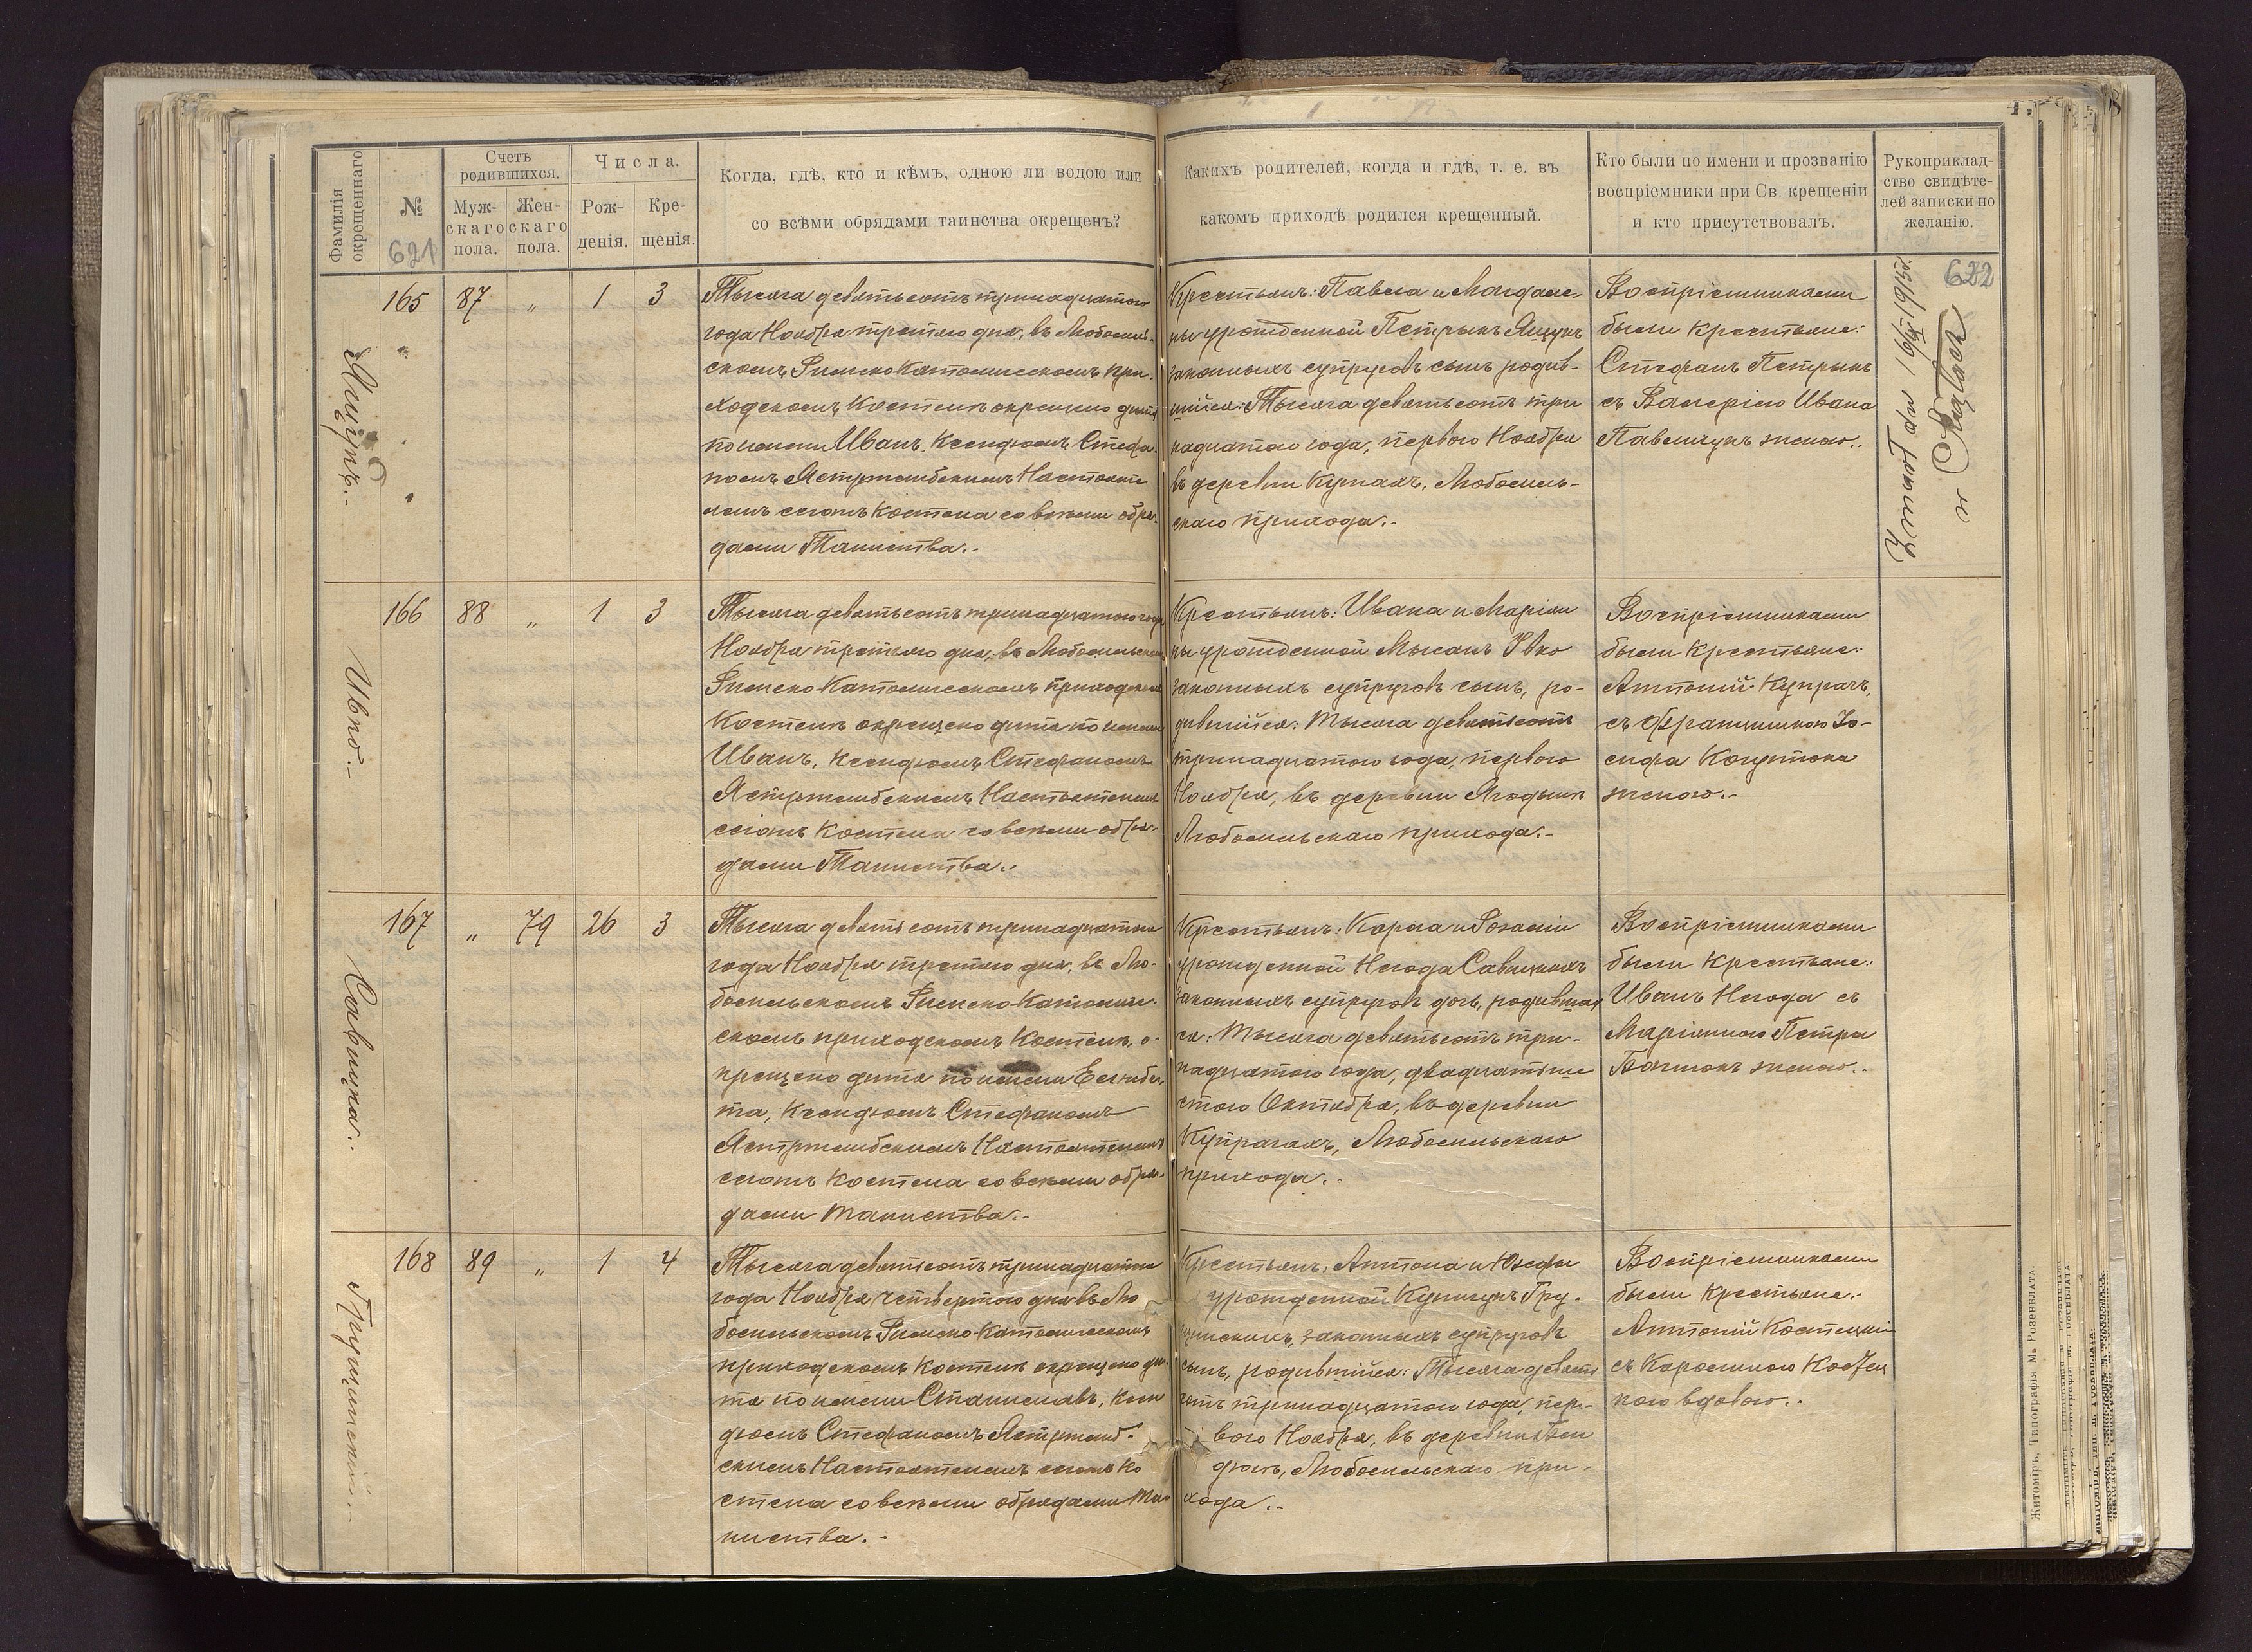 Фамилія
окрещеннаго
№
621
Счетъ
родившихся.
Муж-
скаго
пола.
Жен-
скаго
пола.
Числа.
Рож-
денія.
Кре-
щенія.
Когда, гдѣ, кто и кѣмъ, одною ли водою или
со всѣми обрядами таинства окрещенъ?
Какихъ родителей, когда и гдѣ, т. е. въ
какомъ приходѣ родился крещенный.
Кто были по имени и прозванію
воспріемники при Св. крещеніи
и кто присутствовалъ.
Рукоприклад-
ство свидѣте-
лей записки по
желанію.
622
Ящукъ.-
165 87 „ 1 3
Тысяча девятьсотъ тринадцатого
года Ноября третьего дня, въ Любомль-
скомъ Римско Католическомъ при-
ходскомъ Костелѣ окрещено дитя
по имени Иванъ, Ксендзомъ Стефа-
номъ Ястржембскимъ Настояте
лемъ сего Костела со всѣми обря-
дами Таинства.-
Крестьянъ: Павла и Магдале-
ны урожденной Петрыкъ Ящукъ
законныхъ супруговъ сынъ родив-
шійся: Тысяча девятьсотъ три
надцатого года, первого Ноября
въ деревни Любомль-
скаго прихода.-
Воспріемниками
были крестьяне:
Стефанъ Петрыкъ
съ Валеріею Ивана
Павлищукъ женою.-
Zmarł
w
Ивко.-
166 88 „ 1 3
Тысяча девятьсотъ тринадцатого года
Ноября третьяго дня, въ Любомльскомъ
Римско-Католическомъ приходскомъ
Костелѣ окрещено дитя по имени
Иванъ, Ксендзомъ Стефаномъ
Ястржембскимъ Настоятелемъ
сего Костела со всѣми обря-
дами Таинства.-
Крестьянъ: Ивана и Маріан
ны урожденной Ивко
законныхъ супруговъ сынъ, ро-
дившійся: Тысяча девятьсотъ
тринадцатого года, первого
Ноября, въ деревни Ягодынѣ
Любомльскаго прихода.-
Воспріемниками
были крестьяне:
Антоній Купрачъ,
съ Францишкою Іо-
сифа
женою.-
Савицка.-
167 „ 79 26 3
Тысяча девятьсотъ тринадцатого
года Ноября третьего дня, въ Лю-
бомльскомъ Римско-Католиче-
скомъ приходскомъ Костелѣ, о-
крещено дитя по имени Елизабе-
та, Ксендзомъ Стефаномъ
Ястржембскимъ Настоятелемъ
сего Костела со всѣми обря-
дами Таинства.-
Крестьянъ: Карла и Розаліи
урожденной Негода Савицкихъ
законныхъ супруговъ дочь, родившая
ся: Тысяча девятьсотъ три-
надцатого года, двадцатьше
стого Октября, въ деревни
Купрачахъ, Любомльскаго
прихода.-
Воспріемниками
были крестьяне:
Иванъ Негода съ
Маріанною Петра
женою.-
Грущинскій.-
168 89 „ 1 4
Тысяча девятьсотъ тринадцатого
года Ноября четвертого дня въ Лю
бомльскомъ Римско-Католическомъ
приходскомъ Костелѣ окрещено ди-
тя по имени Станиславъ, Ксен
дзомъ Стефаномъ Ястржемб-
скимъ Настоятелемъ сего Ко
стела со всѣми обрядами Таи
нства.-
Крестьянъ: Антона и Юзефы
урожденной Гру-
щинскихъ, законныхъ супруговъ
сынъ, родившійся: Тысяча девять
сотъ тринадцатого года, пер-
вого Ноября, въ деревни
Любомльскаго при-
хода.-
Воспріемниками
были крестьяне:
Антоній Костецкій
съ Каролиною Костец
кою вдовою.-
Житоміръ, Типографія М. Розенблата.